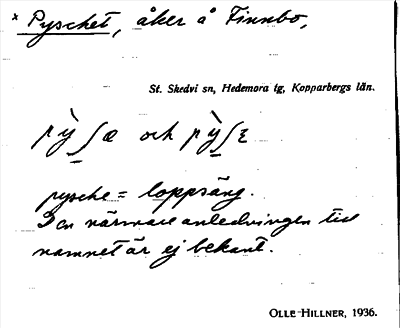 * Pyschet, åker å Finnbo,
St. Skedvi sn, Hedemora tg, Kopparbergs län.
pỳʃæ och pỳʃɛ
pysche = loppsäng.
Den närmare anledningen till
namnet är ej bekant.
OLLE HILLNER, 1936.